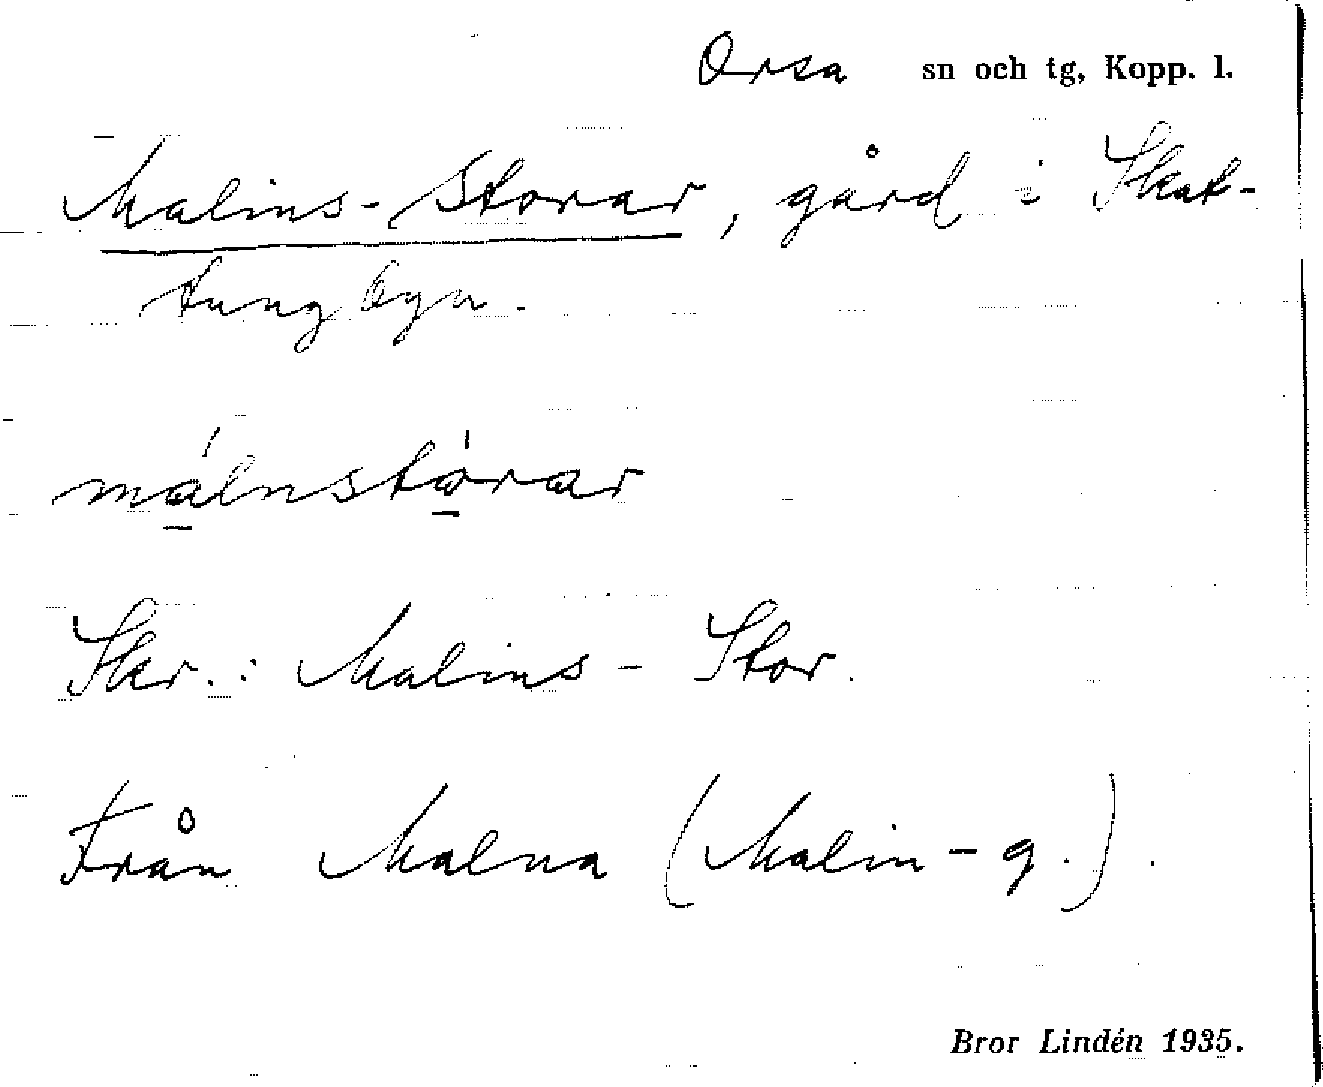 Orsa sn och tg, Kopp. l.
Malins-Storar, gård i Skat-
tungbyn.
málnstórar
Skr.: Malins-Stor.
Från Malna (Malin-g.).
Bror Lindén 1935.